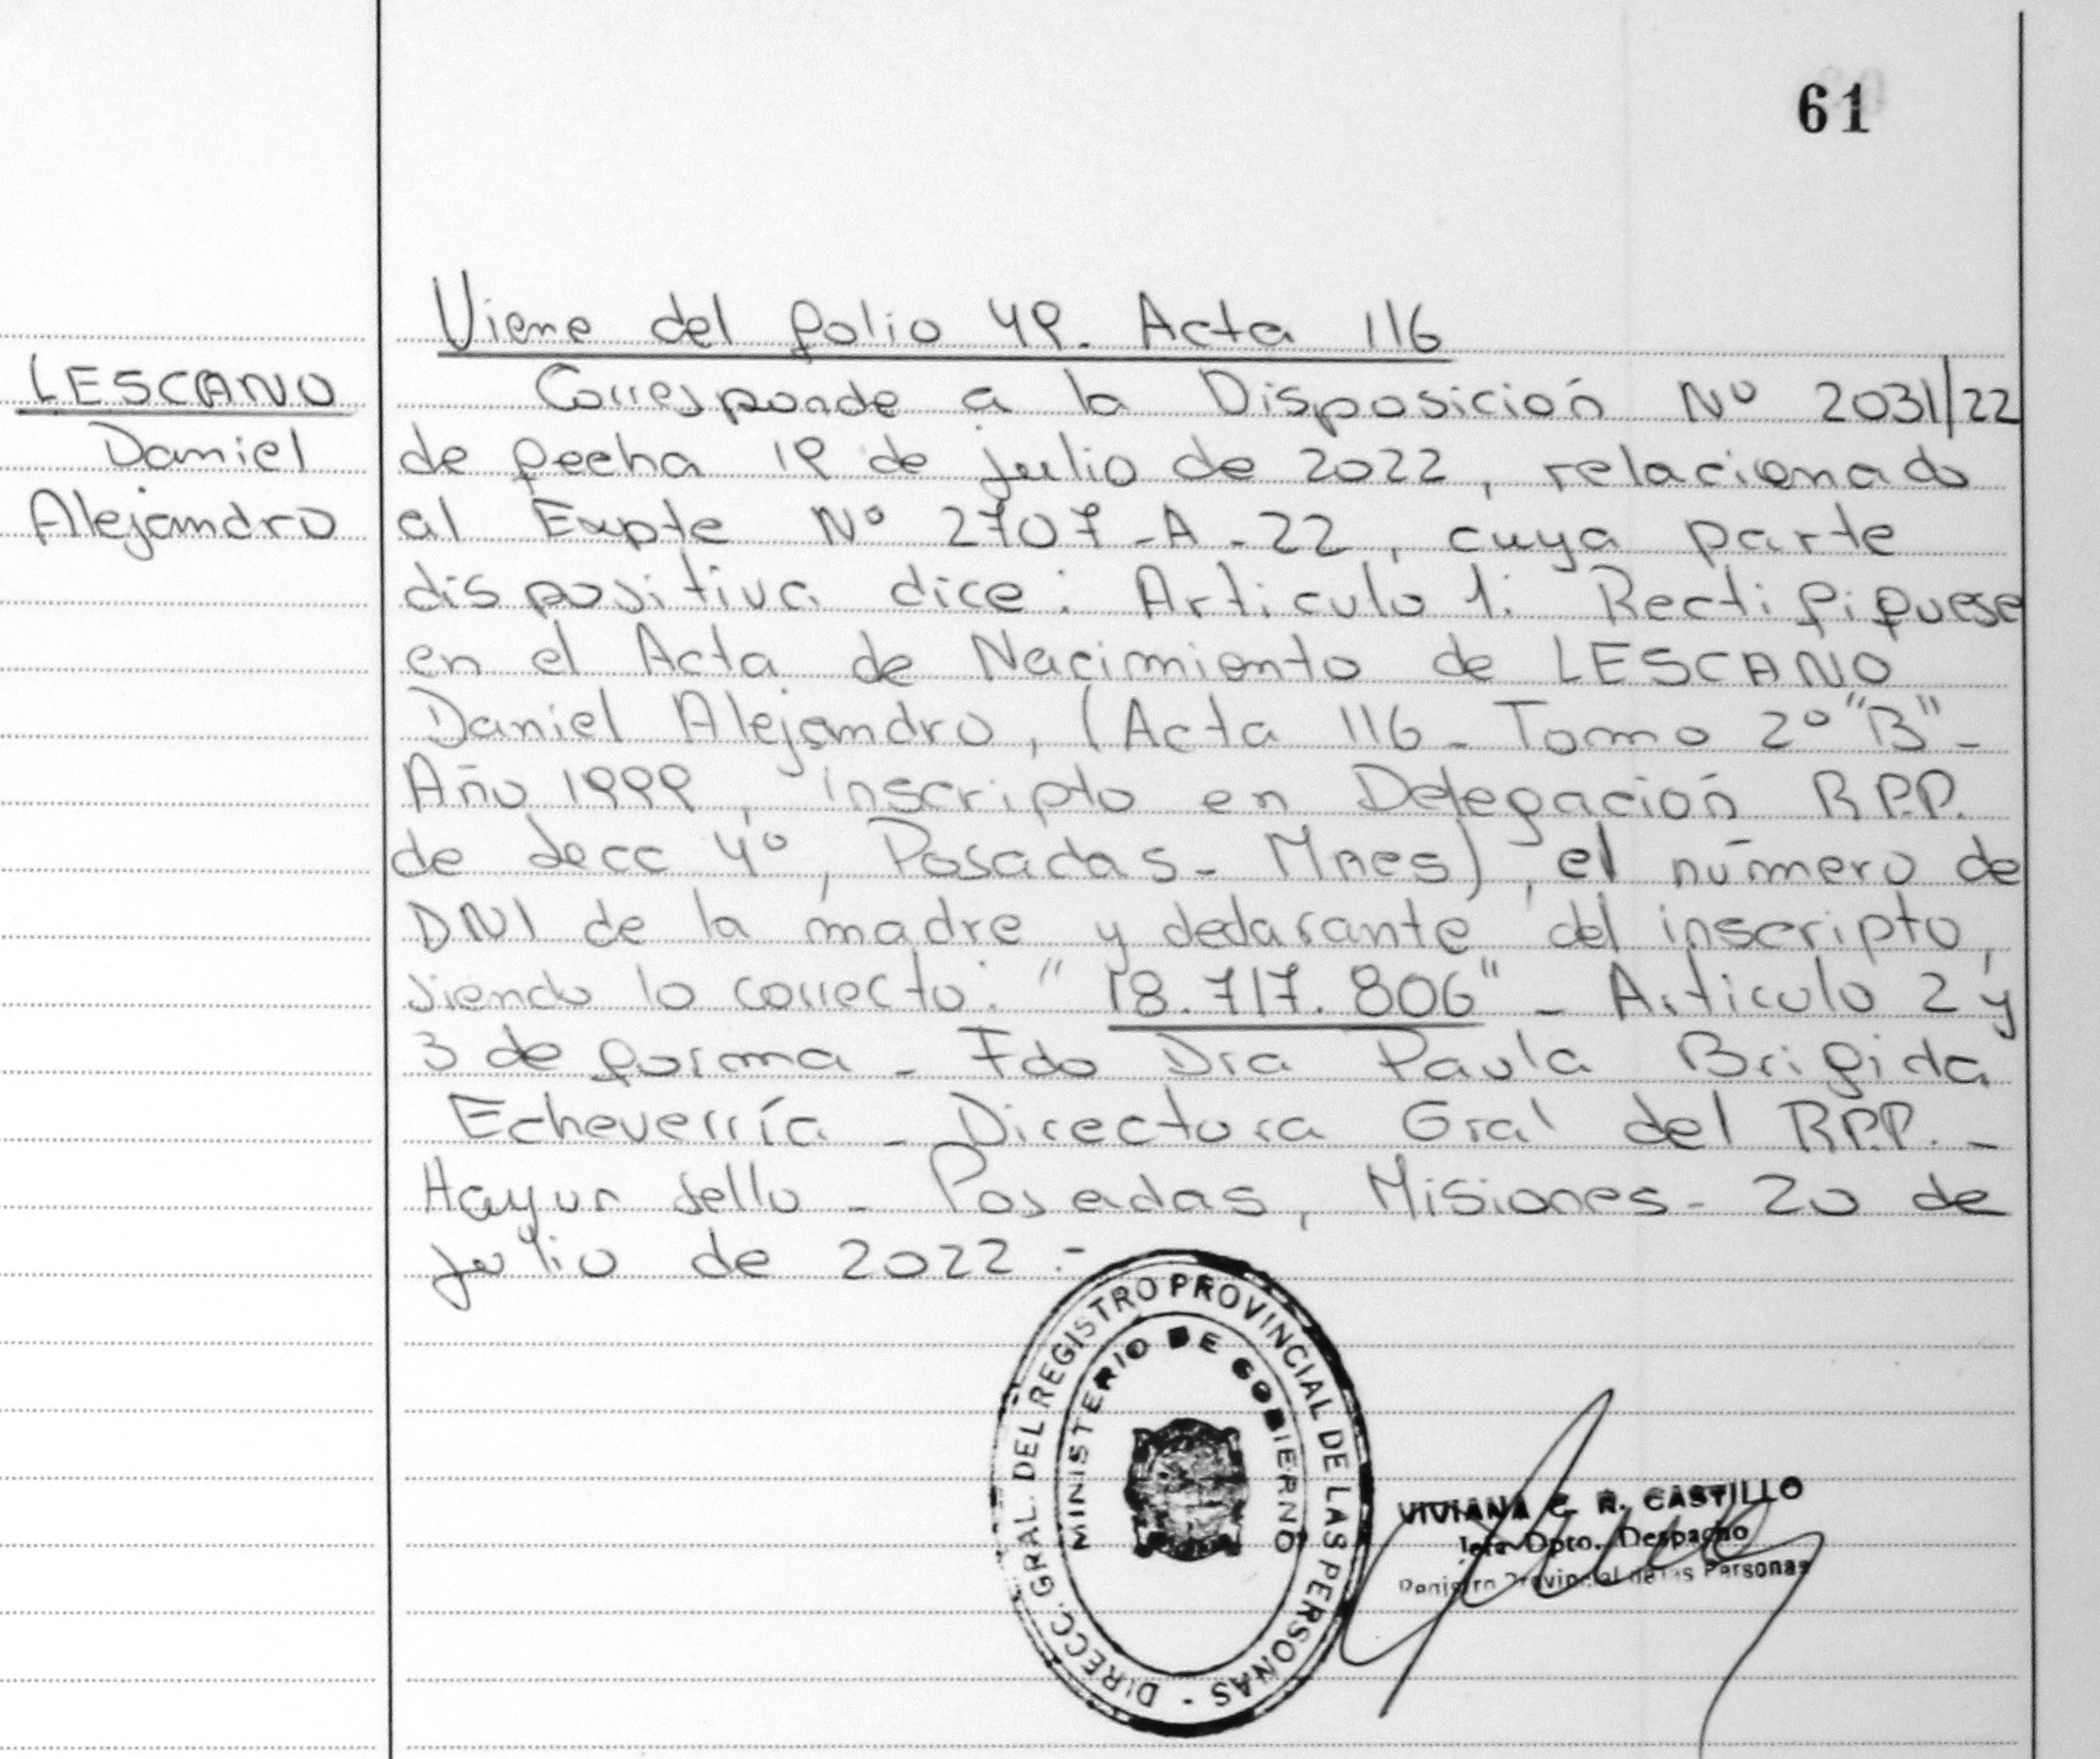 61
Viene del folio 49. Acta 116
LESCANO
Daniel
Alejandro
Corresponde a la Disposición Nº 2031/22
de fecha 19 de julio de 2022, relacionado
al Expte Nº 2707-A-22, cuya parte
dispositiva dice: Articulo 1: Rectifiquese
en el Acta de Nacimiento de LESCANO
Daniel Alejandro, (Acta 116 - Tomo 2º "B" -
Año 1999, inscripto en Delegación R.P.P.
de Secc 4º, Posadas - Mnes), el número de
DNI de la madre y declarante del inscripto,
siendo lo correcto: "18.717.806" - Articulo 2 y
3 de forma - Fdo Dra Paula Brigida
Echeverría - Directora Gral del R.P.P. -
Hayun sello - Posadas, Misiones - 20 de
julio de 2022.-
DIRECC. GRAL. DEL REGISTRO PROVINCIAL DE LAS PERSONAS -
MINISTERIO DE GOBIERNO
VIVIANA C. R. CASTILLO
Jefe Dpto. Despacho
Registro Provincial de las Personas